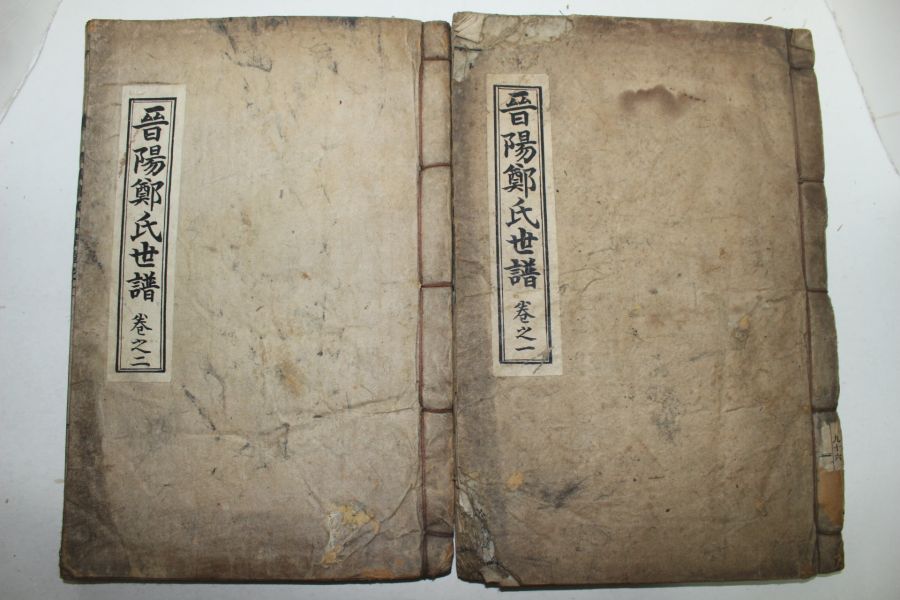 晉陽鄭氏世譜 卷之一
晉陽鄭氏世譜 卷之二
九十六
一